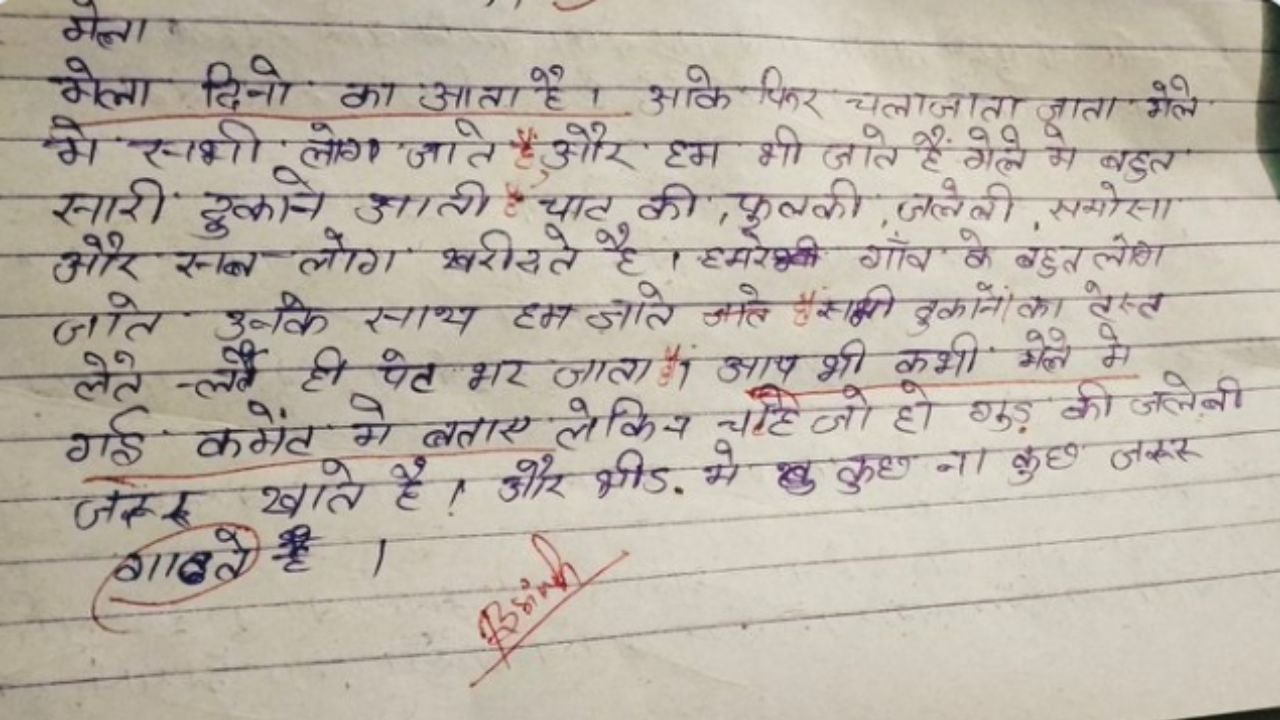 मेला
मेला दिनो का आता है। आके फिर चलाजाता जाता मेले
मे सभी लोग जाते हैं, और हम भी जाते हैं मेले मे बहुत
सारी दुकाने आती है चाट की, फुलकी, जलेबी, समोसा
और सब लोग खरीदते है। हमरे गाँव के बहुत लोग
जाते उनके साथ हम जाते जाते हैं सभी दुकानों का टेस्ट
लेते -लेते ही पेट भर जाता है। आप भी कभी मेले मे
गई कमेंट मे बताए लेकिन चाहे जो हो गुड़ की जलेबी
जरूर खाते है। और भीड. मे कुछ ना कुछ जरूर
है।